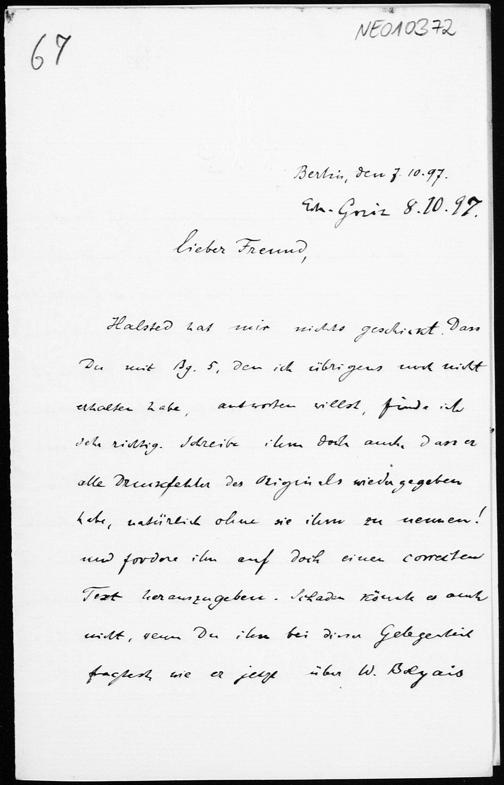 67
NE010372
Berlin, den 7.10.97.
8.10.97.
lieber Freund,
Halsted hat mir nichts geschickt. Dass
Du mit Bg. 5, den ich übrigens noch nicht
erhalten habe, antworten willst, finde ich
sehr richtig. Schreibe ihm doch auch, dass er
alle Druckfehler des Originals wiedergegeben
habe, natürlich ohne sie ihm zu nennen!
und fordere ihn auf doch einen correcten
Text herauszugeben. Schaden könnte es auch
nicht, wenn Du ihn bei dieser Gelegenheit
fragtest wie er jetzt über W. Bolyais